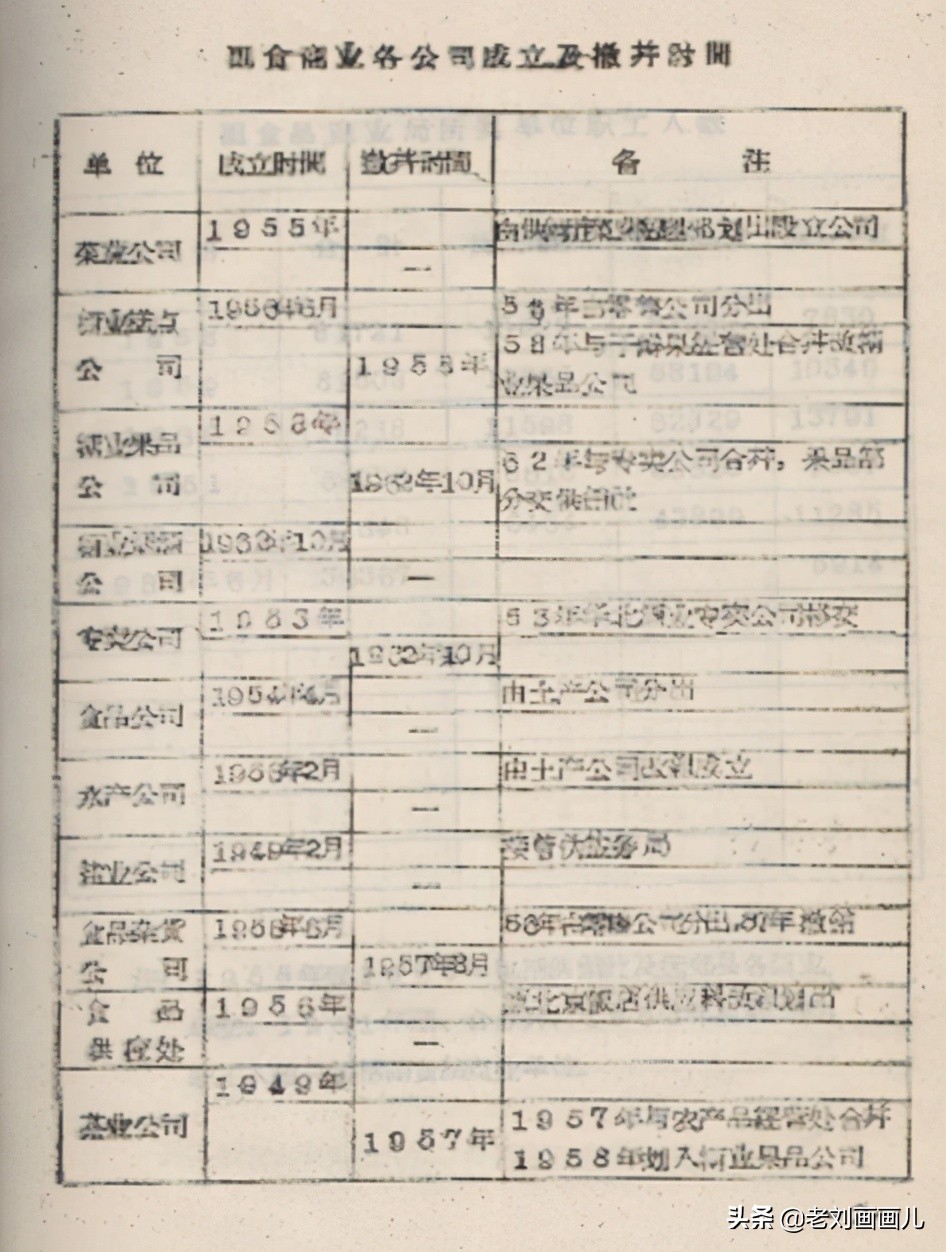 副食商业各公司成立及撤并时間
单位 成立时間 撤并时間 备注
菜蔬公司 1955年 划出设立公司
—
糖业糕点 1956年6月 56年由零售公司分出
公司 1958年 58年与干鲜果经营处合并改糖
业果品公司
糖业果品 1958年
公司 1962年10月 62年与专卖公司合并，果品部
分交供销社
公司 —
专卖公司 专卖公司移交
1962年10月
食品公司 1954年4月 由土产公司分出
—
水产公司 1956年2月 由土产公司改组成立
—
盐业公司 1949年2月 接管
—
食品杂货 公司分出,57年撤销
公司 1957年8月
食品 1956年 北京饭店供应科
供应处 —
茶业公司 1949年
1957年 1957年与农产品经营处合并
1958年划入糖业果品公司
头条 @老刘画画儿